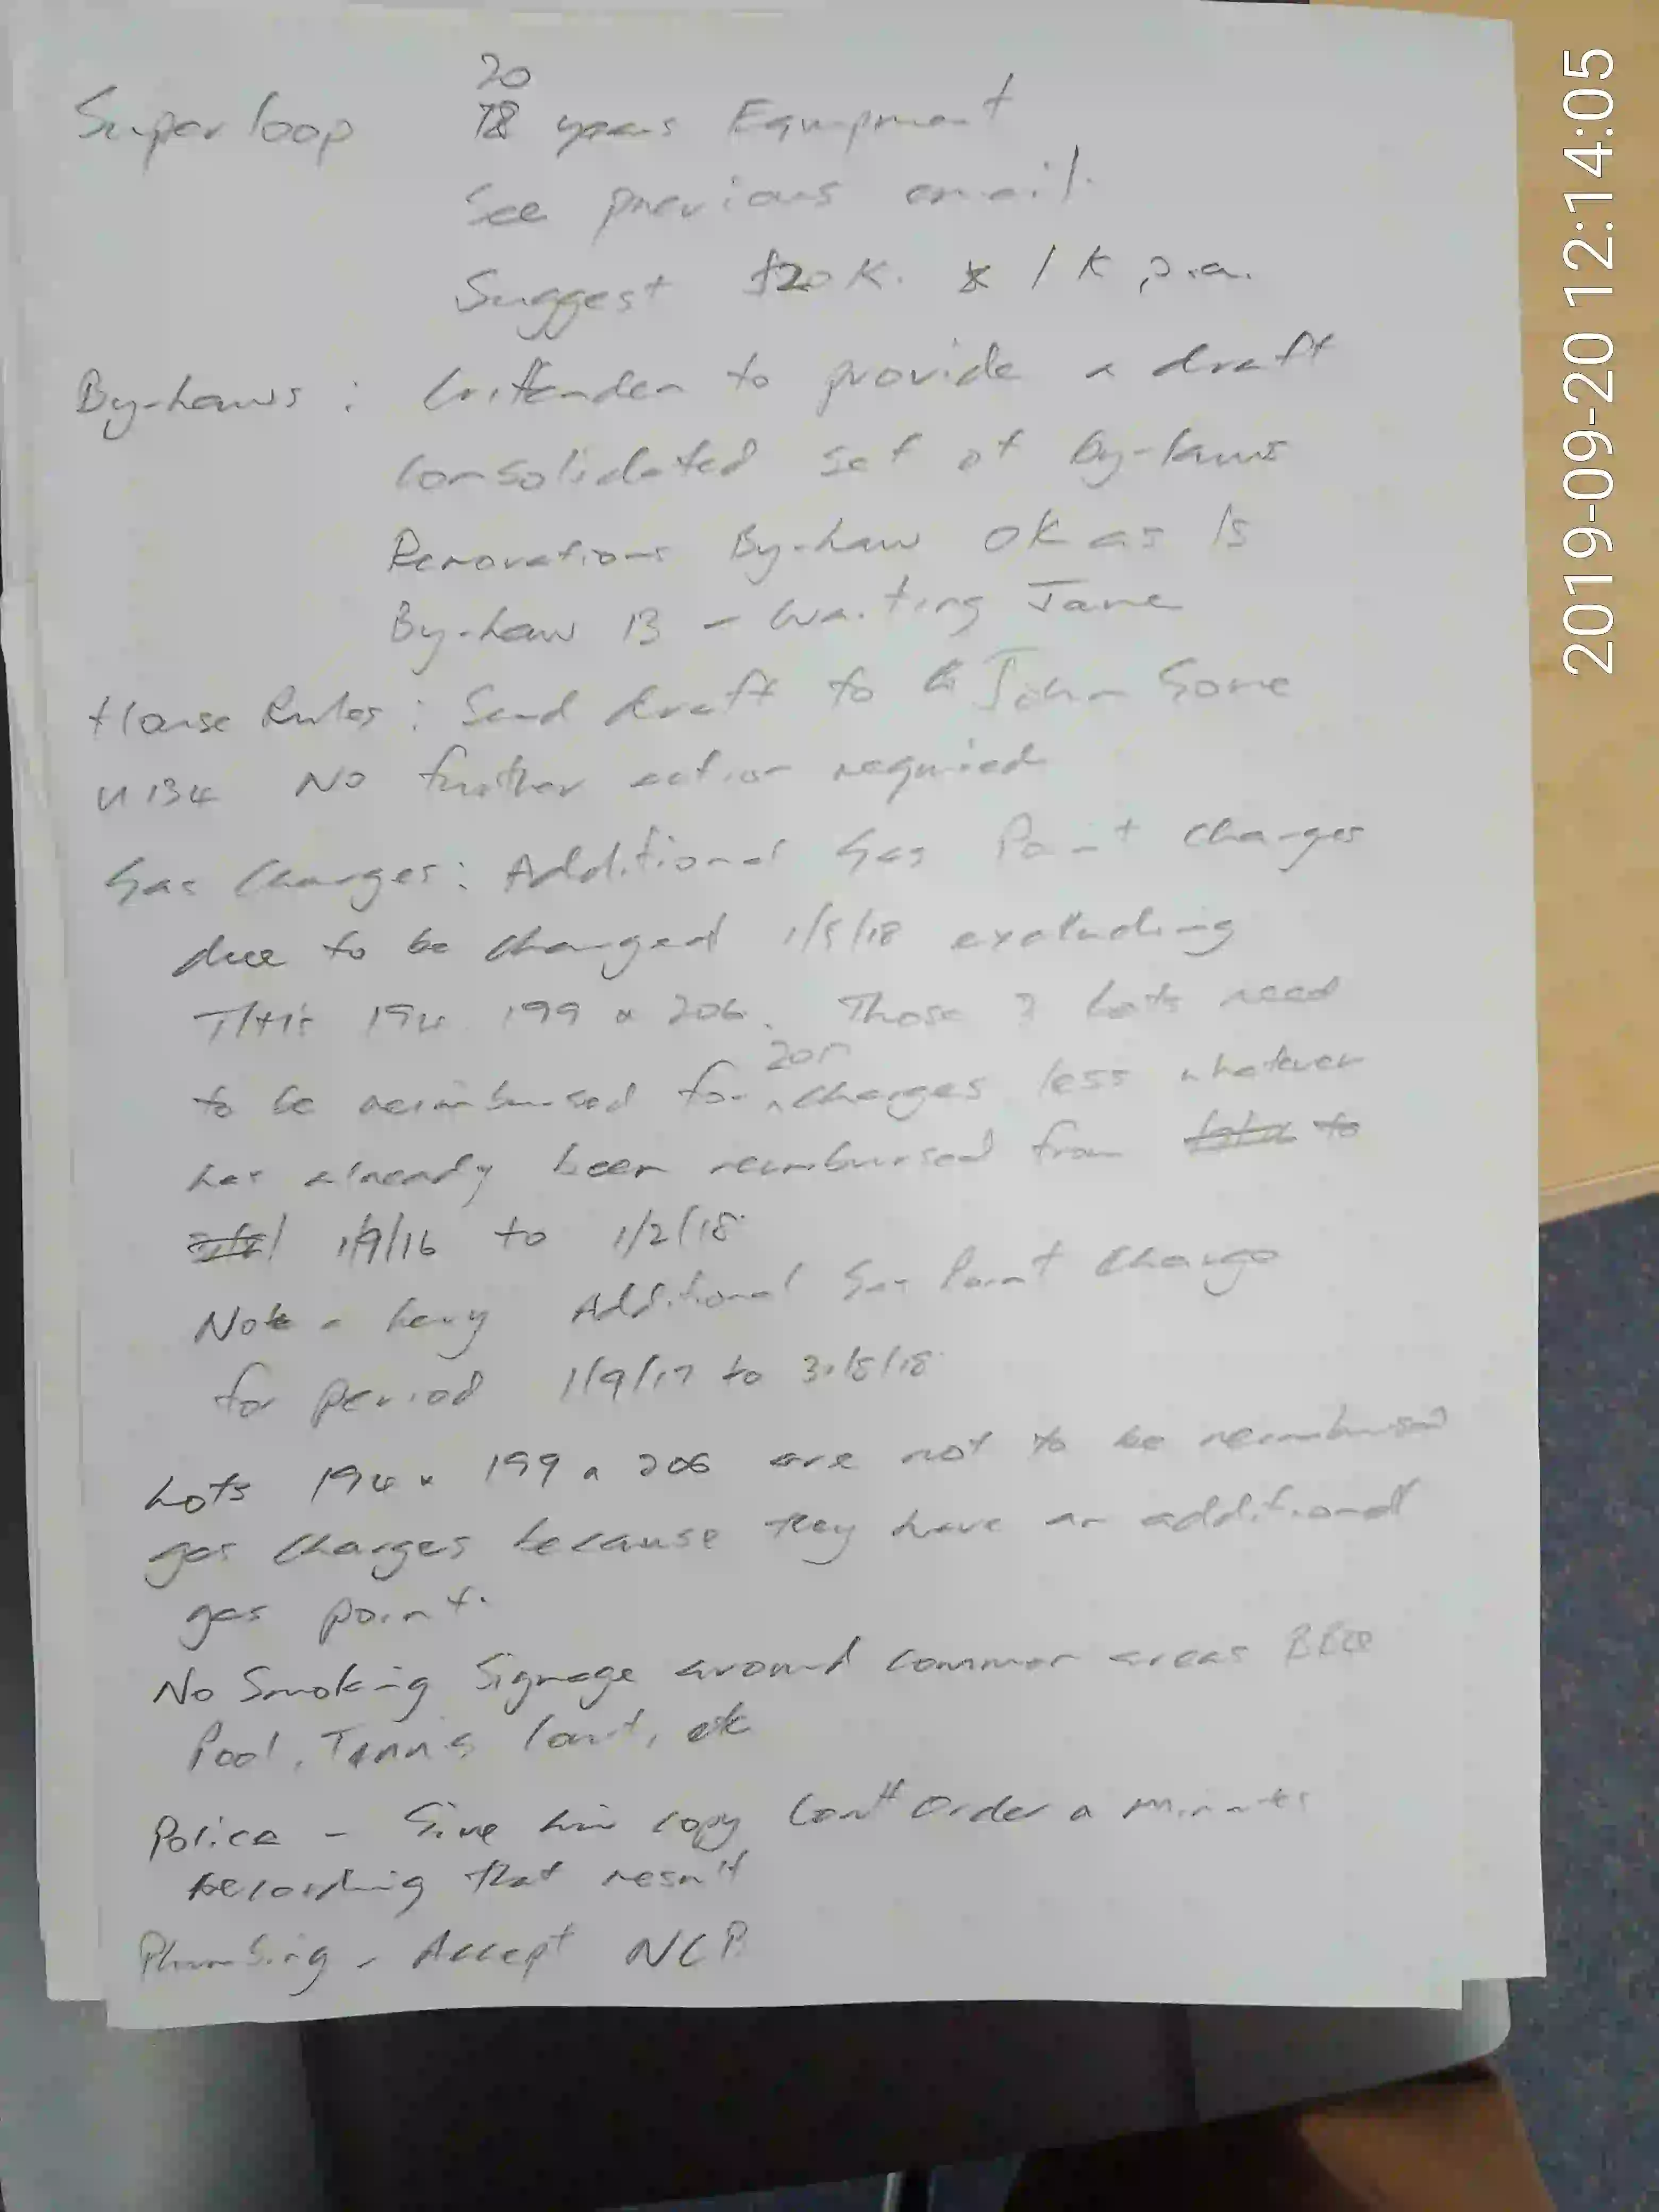 20
Superloop 18 years Equipment
See previous email.
Suggest $20K. & 1K p.a.
By-Laws : Crittenden to provide a draft
consolidated set of By-Laws
Renovations By-Law OK as is
By-Law 13 - Waiting Jane
House Rules : Send draft to John Gore
U 134 No further action required
Gas Charges : Additional Gas Point charges
due to be charged excluding
194 199 & 206. Those 3 Lots need
to be reimbursed for charges less whatever
has already been reimbursed from to
1/9/16 to 1/2/18.
Note - Levy Additional Gas Point Charge
for period 1/9/17 to 31/8/18.
Lots 194 & 199 & 206 are not to be reimbursed
gas charges because they have an additional
gas point.
No Smoking Signage around common areas BBQ
Pool, Tennis Court, etc
Police - Give him copy Court Order & minutes
recording that result
Plumbing - Accept NCP.
2019-09-20 12:14:05